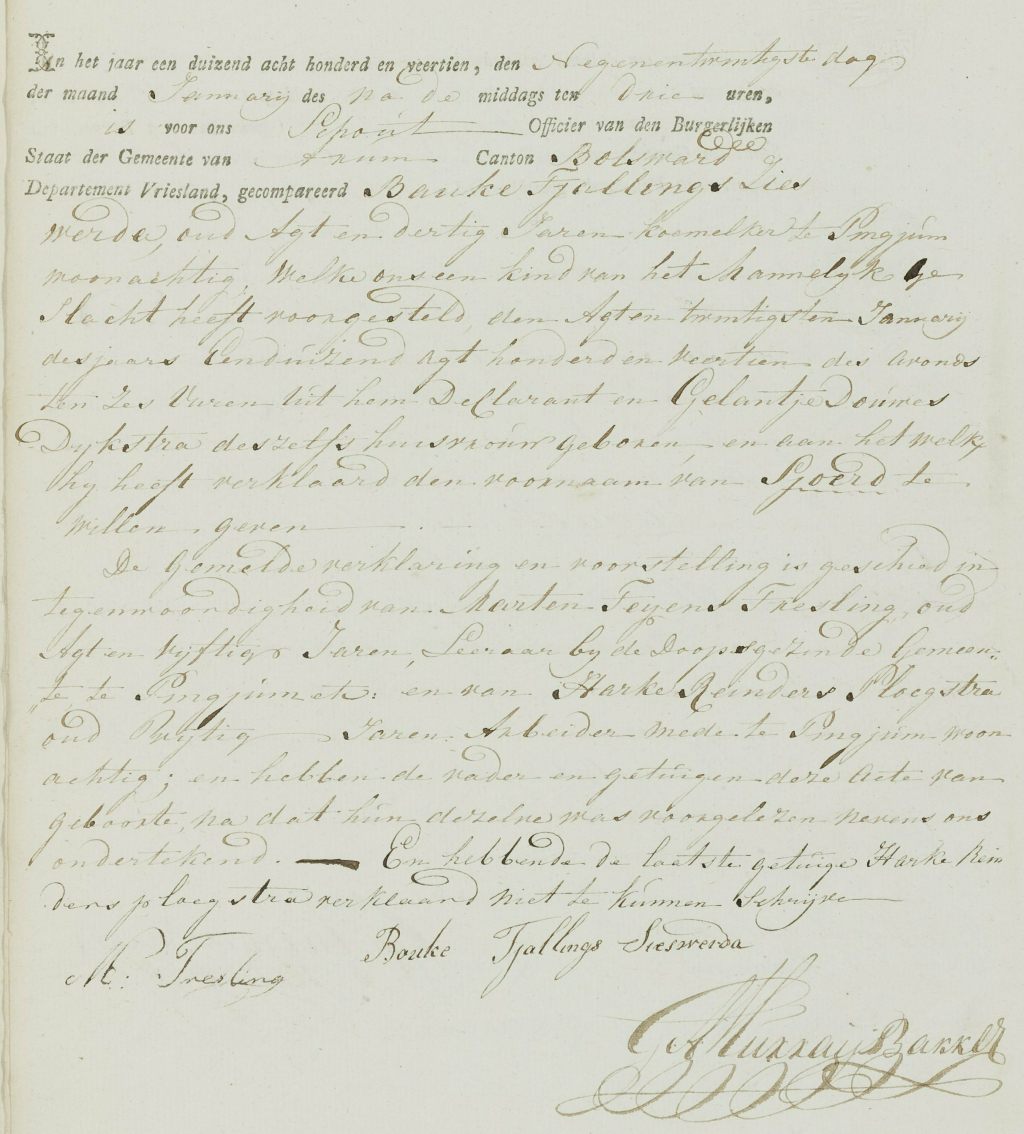 In het jaar een duizend acht honderd en veertien, den Negenentwintigste dag
der maand Januarij des na de middags ten drie uren,
is voor ons Schout Officier van den Burgerlijken
Staat der Gemeente van Arum Canton Bolsward
Departement Vriesland, gecompareerd Bauke Tjallings Zies
werda, oud Agt en dertig Jaren Koemelker te Pingjum
woonachtig, Welke ons een kind van het Mannelyk Ge
slacht heeft voorgesteld, den Agt en twintigsten Januarij
des jaars Eenduizend agt honderd en veertien des avonds
ten Zes Uuren uit hem Declarant en Gelantje Douwes
Dykstra deszelfs huisvrouw geboren, en aan het welk
hy heeft verklaard den voornaam van Sjoerd te
willen geven
De Gemelde verklaring en voorstelling is geschied in
tegenwoordigheid van Marten Feyens Tresling, oud
Agt en vyftig Jaren, Leeraar by de Doopsgezinde Gemeen„
„te te Pingjum etc: en van Harke Reinders Ploegstra
oud Vyftig Jaren Arbeider mede te Pingjum woon
achtig; en hebben de vader en getuigen deze acte van
geboorte, na dat hun dezelve was voorgelezen nevens ons
ondertekend. — En hebbende de laatste getuige Harke Rein
ders ploegstra verklaard niet te kunnen Schrijve
Bouke Tjallings Sieswerda
M: Tresling
Murraij Bakker